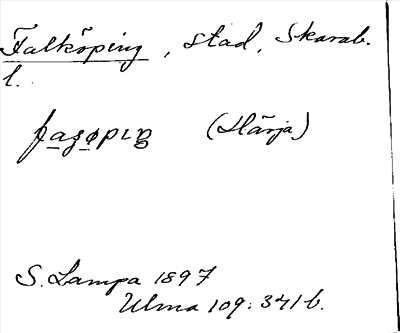 Falköping, stad, Skarab.
l.
(Härja)
S. Lampa 1897
Ulma 109:341b.